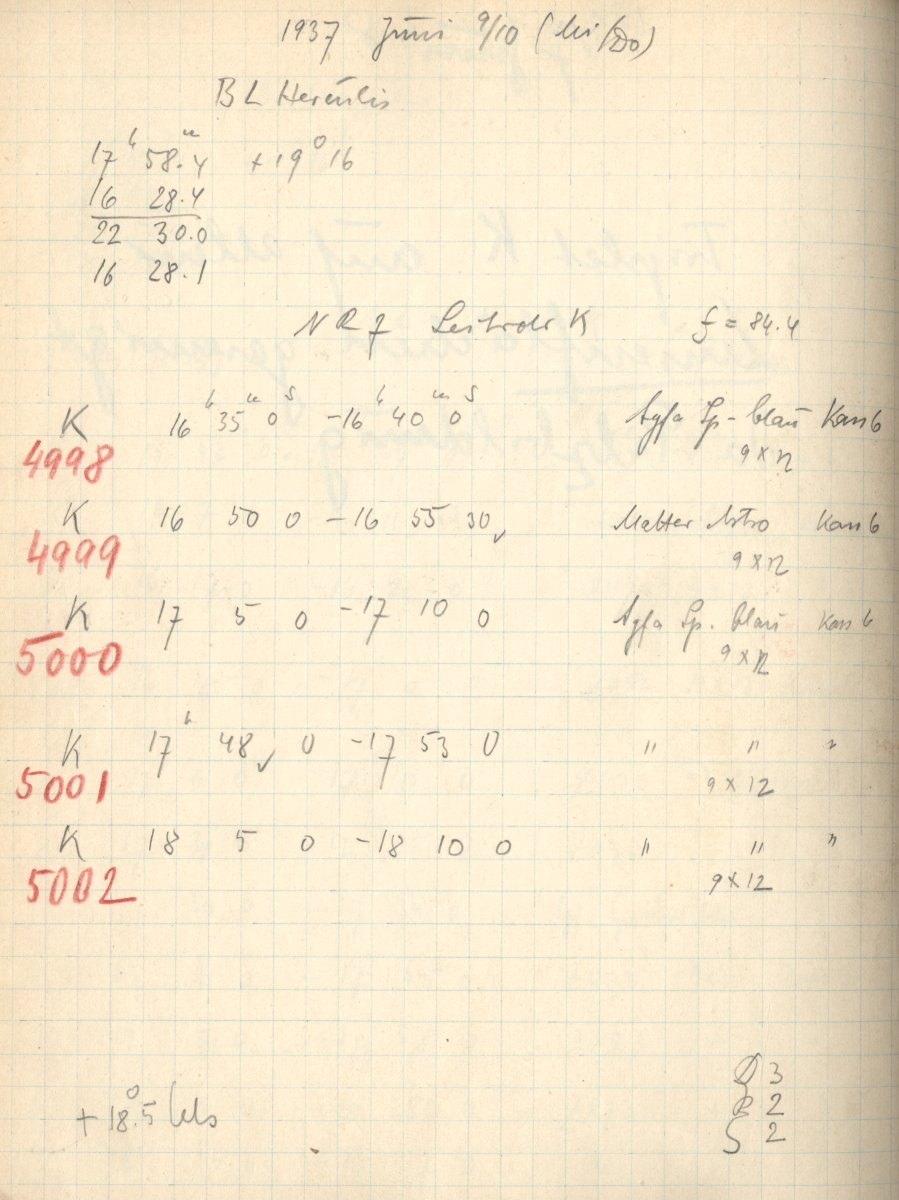 1937 Juni 9/10 (Mi/Do)
BL Herculis
17h 58.4m +19° 16
16 28.4
22 30.0
16 28.1
NR 7 K f = 84.4
K 16h 35m 0s -16h 40m 0s Agfa Sp-blau Kass 6
4998 9×12
K 16 50 0 -16 55 30 Astro Kass 6
4999 9×12
K 17 5 0 -17 10 0 Agfa Sp. blau Kass 6
5000 9×12
K 17h 48 0 -17 53 0 " " "
5001 9×12
K 18 5 0 -18 10 0 " " "
5002 9×12
3
R 2
+18°.5 Cels S 2